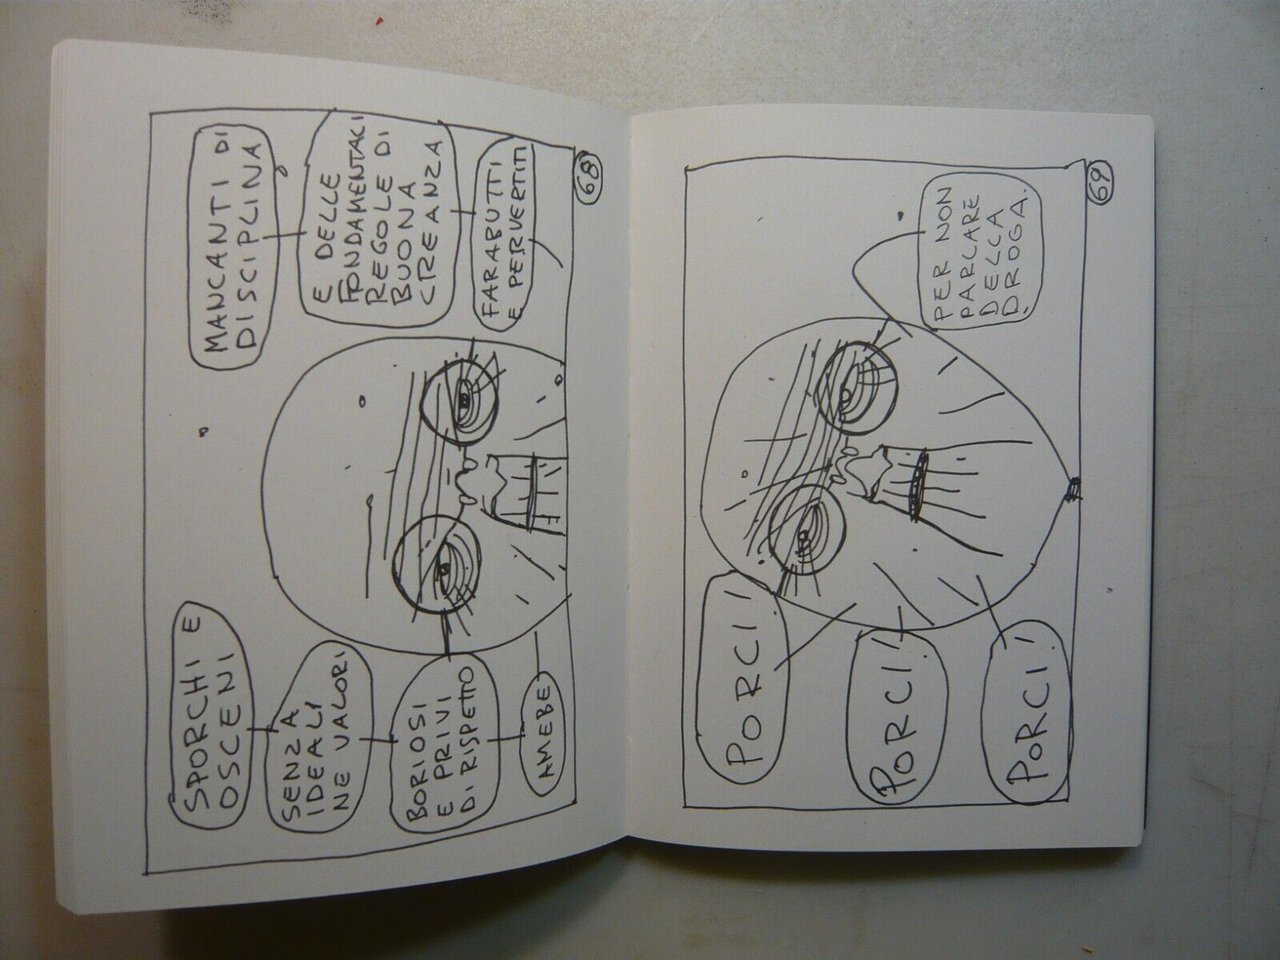 SPORCHI E
OSCENI
SENZA
IDEALI
NE VALORI
BORIOSI
E PRIVI
DI RISPETTO
AMEBE
MANCANTI DI
DISCIPLINA
E DELLE
FONDAMENTALI
REGOLE DI
BUONA
CREANZA
FARABUTTI
E PERVERTITI
68
PORCI!
PORCI!
PORCI!
PER NON
PARLARE
DELLA
DROGA.
69